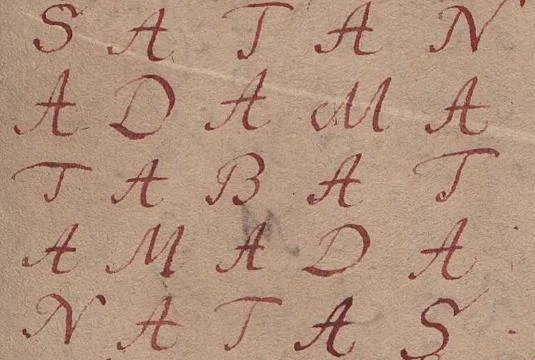 S A T A N
A D A M A
T A B A T
A M A D A
N A T A S